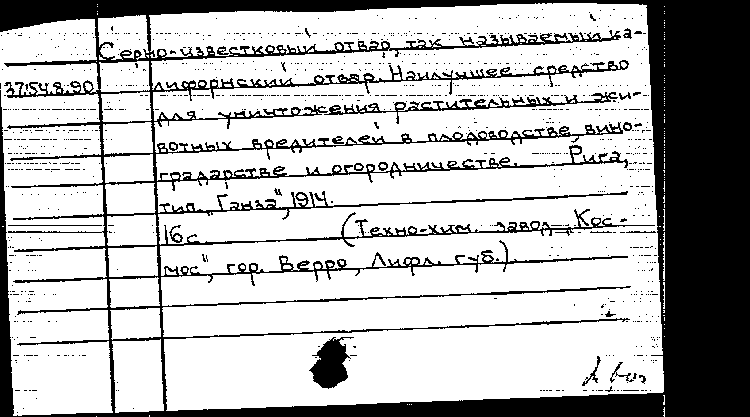 Серно-известковый отвар, так называемый ка-
37:54.8.90 лифорнский отвар. Наилучшее средство
для уничтожения растительных и жи-
вотных вредителей в плодоводстве, вино-
градарстве и огородничестве. Рига,
тип. „Ганза", 1914.
16 с. (Техно-хим. завод „Кос-
мос", гор. Верро, Лифл. губ.)